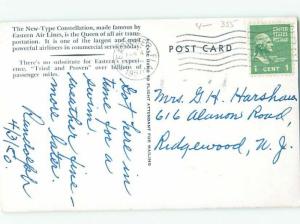 The New-Type Constellation, made famous by
Eastern Air Lines, is the Queen of all air trans-
portation. It is one of the largest and most
powerful airliners in commercial service today.
There's no substitute for Eastern's experi-
ence. "Tried and Proven" over billions of
passenger miles.
Got here in
time for a
swim.
Weather fine -
more later
Randolph
4/3/50.
PLEASE HAND TO FLIGHT ATTENDANT FOR MAILING
POST CARD
1 CENT
Mrs. G. H. Harshaw
616 Alanon Road,
Ridgewood, N. J.